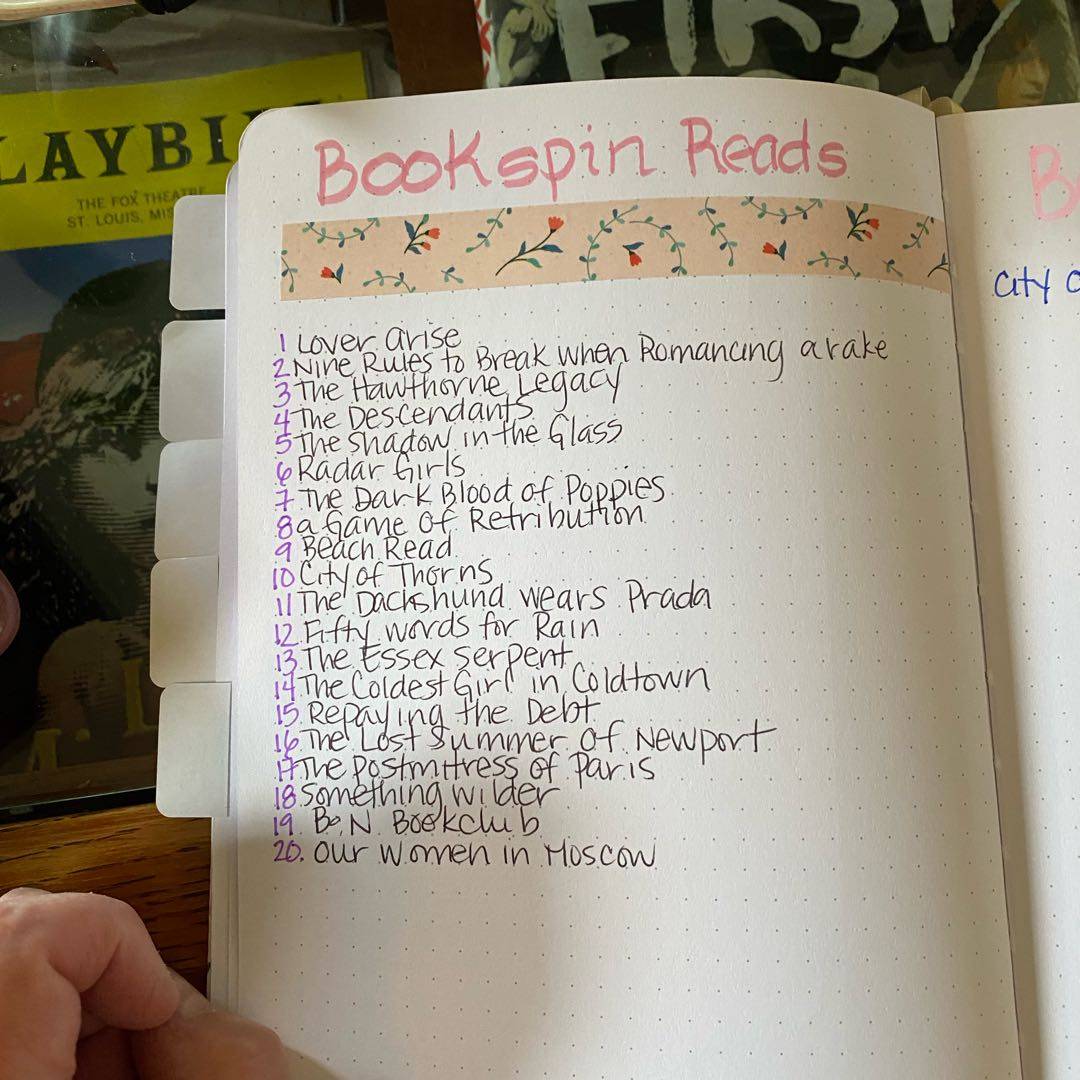 LAYBI
THE FOX THEATRE
ST. LOUIS, MIS
FIRST
Bookspin Reads
B
City o
1 Lover arise
2 Nine Rules to Break when Romancing a rake
3 The Hawthorne Legacy
4 The Descendants
5 The Shadow in the Glass
6 Radar Girls
7 The Dark Blood of Poppies
8 a Game of Retribution
9 Beach Read
10 City of Thorns
11 The Dachshund wears Prada
12 Fifty words for Rain
13 The Essex Serpent
14 The Coldest Girl in Coldtown
15 Repaying the Debt
16 The Lost Summer of Newport
17 The Postmittress of Paris
18 Something wilder
19. BoN Bookclub
20. Our Women in Moscow